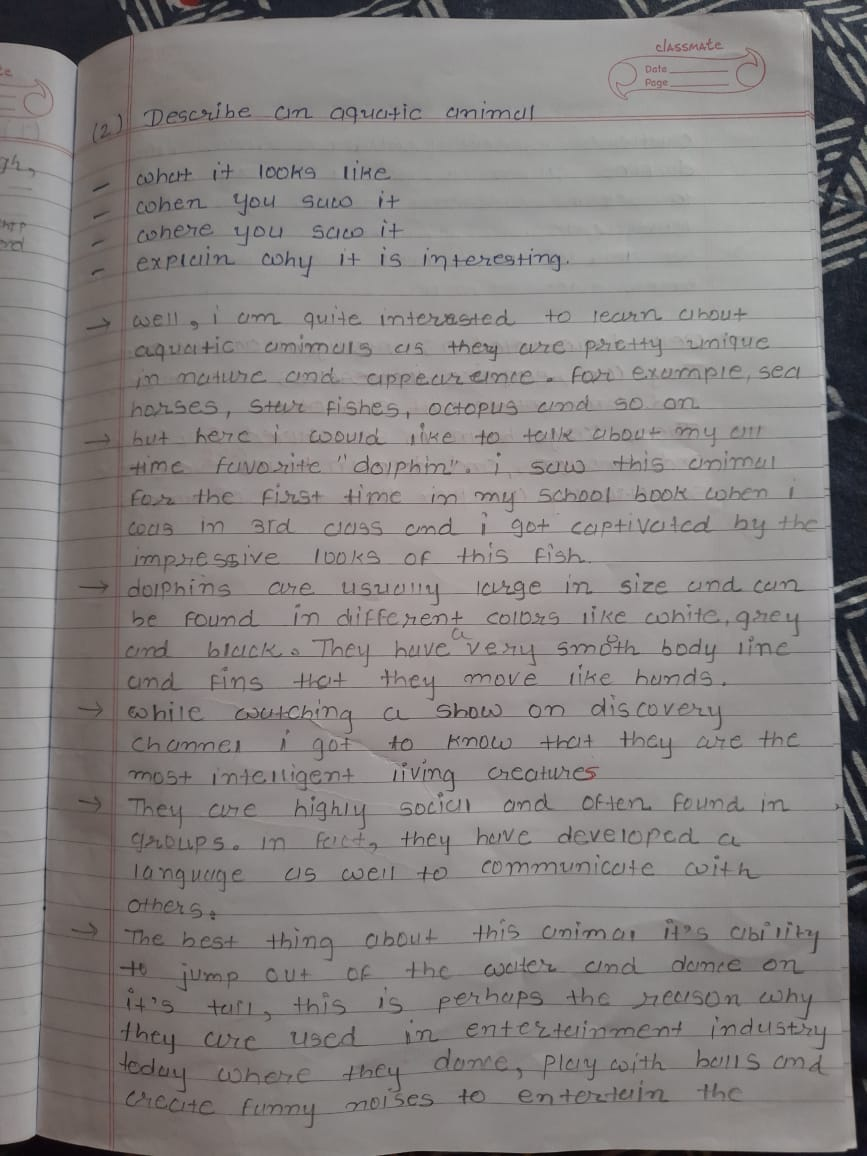 classmate
Date
Page
(2) Describe an aquatic animal
- what it looks like
- when you saw it
- where you saw it
- explain why it is interesting.
→ well, i am quite interested to learn about
aquatic animals as they are pretty unique
in nature and appearance. For example, sea
horses, star fishes, octopus and so on
→ but here i would like to talk about my all
time favorite "dolphin". i saw this animal
for the first time in my school book when i
was in 3rd class and i got captivated by the
impressive looks of this fish.
→ dolphins are usually large in size and can
be found in different colors like white, grey
and black. They have a very smoth body line
and fins that they move like hands.
→ while watching a show on discovery
channel i got to know that they are the
most intelligent living creatures
→ They are highly social and often found in
groups. in fact, they have developed a
language as well to communicate with
others.
→ The best thing about this animal it's ability
to jump out of the water and dance on
it's tail, this is perhaps the reason why
they are used in entertainment industry
today where they dance, play with balls and
create funny noises to entertain the